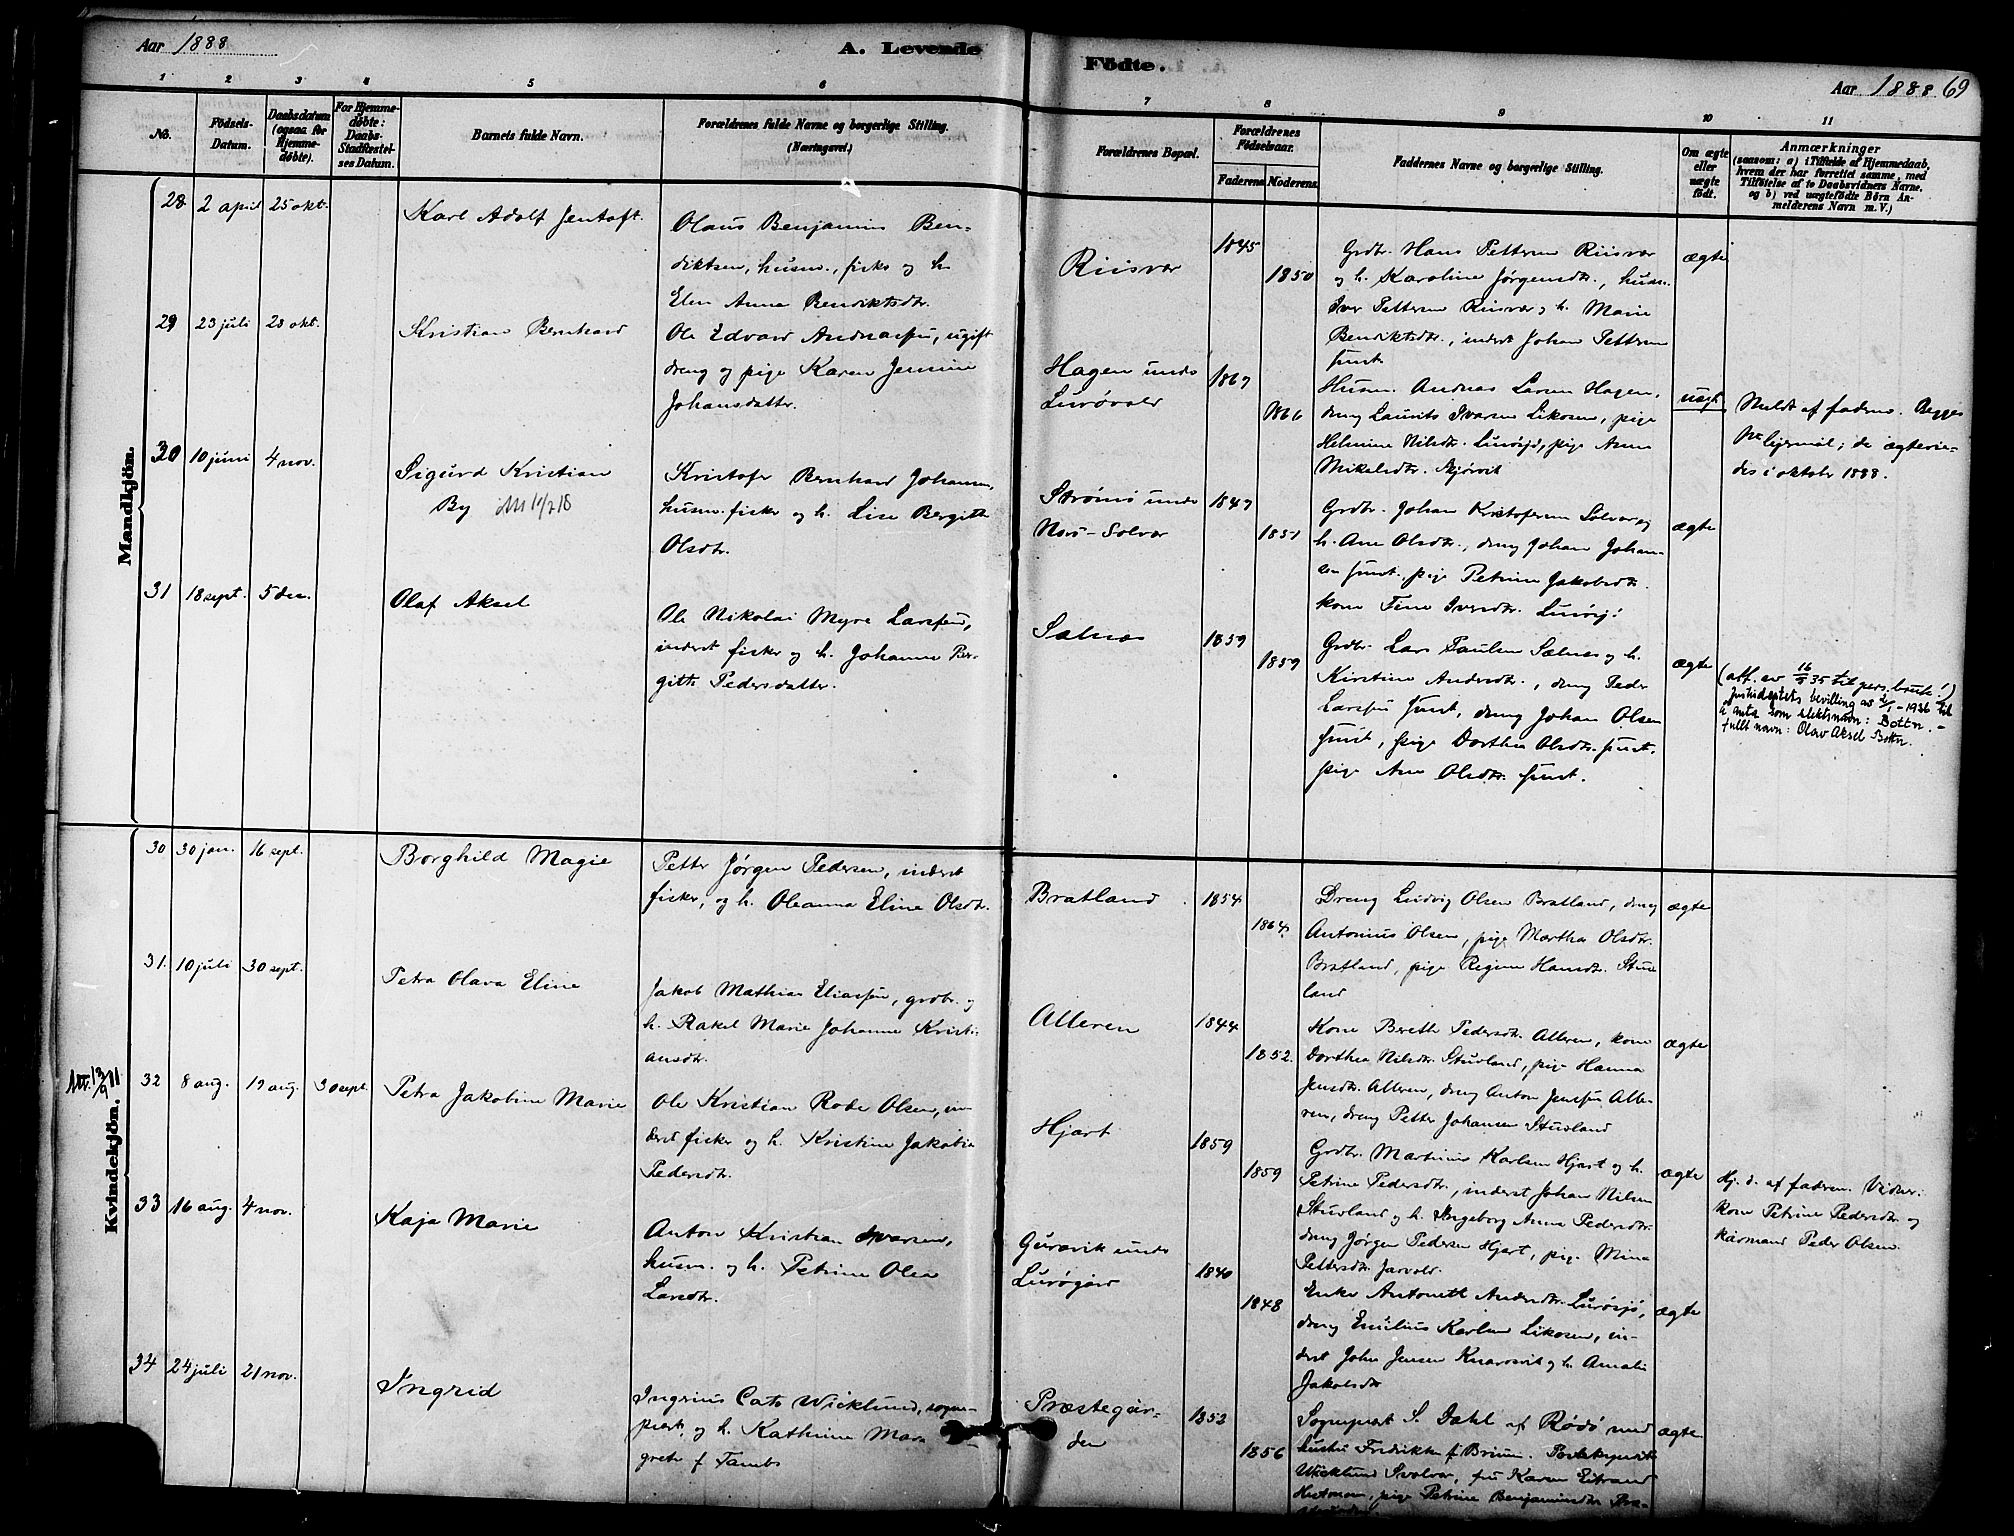 Aar 1888
A. Levende
Födte.
Aar 1888 69
1 2 3 4 5 6 7 8 9 10 11
No.
Födsels-
Datum.
Daabsdatum
(ogsaa for
Hjemme-
döbte).
For Hjemme-
döbte:
Daabs-
Stadfæstel-
ses Datum.
Barnets fulde Navn.
Forældrenes fulde Navne og borgerlige Stilling.
(Næringsvei.)
Forældrenes Bopæl.
Forældrenes
Födselsaar.
Faderens
Moderens
Faddernes Navne og borgerlige Stilling.
Om ægte
eller
uægte
födt.
Anmærkninger
(saasom: a) i Tilfælde af Hjemmedaab,
hvem der har forrettet samme, med
Tilföielse af to Daabsvidners Navne,
og b) ved uægtefödte Börn An-
melderens Navn m. V.)
Mandkjön.
28 2 april 25 okt.
Karl Adolf Jentoft
Olaus Benjamin Ben-
diktsen, husm., fisker og h.
Elen Anna Bendiktsdtr.
Riisvær
1845
1850
Grdbr. Hans Pettersen Riisvær
og h. Karoline Jørgensdtr., husm.
Iver Pettersen Riisvær og h. Marie
Bendiktsdtr., inderst Johan Pettersen
smst.
ægte
29 23 juli 28 okt.
Kristian Bernhard
Ole Edvard Andreassen, ugift
dreng og pige Karen Jensine
Johansdatter.
Hagen under
Lurøvold
1867
1866
Husm. Andreas Larsen Hagen,
dreng Laurits Ivarsen Likosen, pige
Helmine Nilsdtr. Lurøsjø, pige Anna
Mikelsdtr.
uægt.
Meldt af faderen. Begges
1ste leiermål; de ægtevie-
des i oktober 1888.
30 10 juni 4 nov.
Sigurd Kristian
By
Kristofer Bernhard Johansen,
husm. fisker og h. Lise Bergitte
Olsdtr.
Strømø under
Nord-Solvær
1849
1851
Grdbr. Johan Kristofersen Solvær og
h. Ane Olsdtr., dreng Johan Johan-
sen smst. pige Petrine Jakobsdtr.
kone Fine Iversdtr. Lurøsjø.
ægte
31 18 sept. 5 des.
Olaf Aksel
Ole Nikolai Myre Larssen,
inderst fisker og h. Johanna Ber-
gitte Pedersdatter.
Selnes
1859
1859
Grdbr. Lars Paulsen Selnes og h.
Kirstine Andersdtr., dreng Peder
Larssen smst, dreng Johan Olsen
smst, pige Dorthea Olsdtr. smst,
pige Ane Olsdtr. smst.
ægte
(att. av 16/5 35 til pers. bruk!)
Justisdeptets bevilling av 2/1 - 1936 til
å anta som slektsnavn: Botten. -
fullt navn: Olav Aksel Botten.
Kvindekjön.
30 30 jan. 16 sept.
Borghild Magie
Petter Jørgen Pedersen, inderst
fisker, og h. Oleanna Eline Olsdtr.
Bratland
1854
1864
Dreng Ludvig Olsen Bratland, dreng
Antonius Olsen, pige Martha Olsdtr.
Bratland, pige Regine Hansdtr. Stuv-
land
ægte
31. 10 juli 30 sept.
Petra Olava Eline
Jakob Mathias Eliassen, grdbr. og
h. Rakel Marie Johanne Kristi-
ansdtr.
Alleren
1844
1852
Kone Bereth Pedersdtr. Alleren, kone
Dorthea Nilsdtr. Stuvland, pige Hanna
Jensdtr. Alleren, dreng Anton Jenssen Alle-
ren, dreng Petter Johansen Stuvland
ægte
32 8 aug. 19 aug. 30 sept.
Petra Jakobine Marie
Ole Kristian Rode Olsen, in-
derst fisker og h. Kristine Jakobia
Pedersdtr.
Hjart
1859
1859
Grdbr. Martinus Karlsen Hjart og h.
Petrine Pedersdtr., inderst Johan Nilsen
Stuvland og h. Ingeborg Anna Pedersdtr.
dreng Jørgen Pedersen Hjart, pige Mina
Pettersdtr.
ægte
Hj. d. af faderen. Vidner:
kone Petrine Pedersdtr og
kårmand Peder Olsen.
33 16 aug. 4 nov.
Kaja Marie
Anton Kristian Ivarsen,
husm. og h. Petrine Olea
Larsdtr.
Guravik under
Lurøgård
1840
1848
Enke Antonette Andersdtr. Lurøsjø,
dreng Emilius Karlsen Likosen, in-
derst John Jensen Knarvsvik og h. Amalie
Jakobsdtr
ægte
34 24 juli 21 nov.
Ingrid
Ingvius Cato Wicklund, sogne-
prest, og h. Kathrine Mar-
grete f Tambs
Præstegår-
den
1852
1856
Sogneprest S. Dahl af Rødø med
hustru Fredrikke f Bruun.
Wicklund Svolvær, fru Karen
pige Petrine Benjaminsdtr
ægte